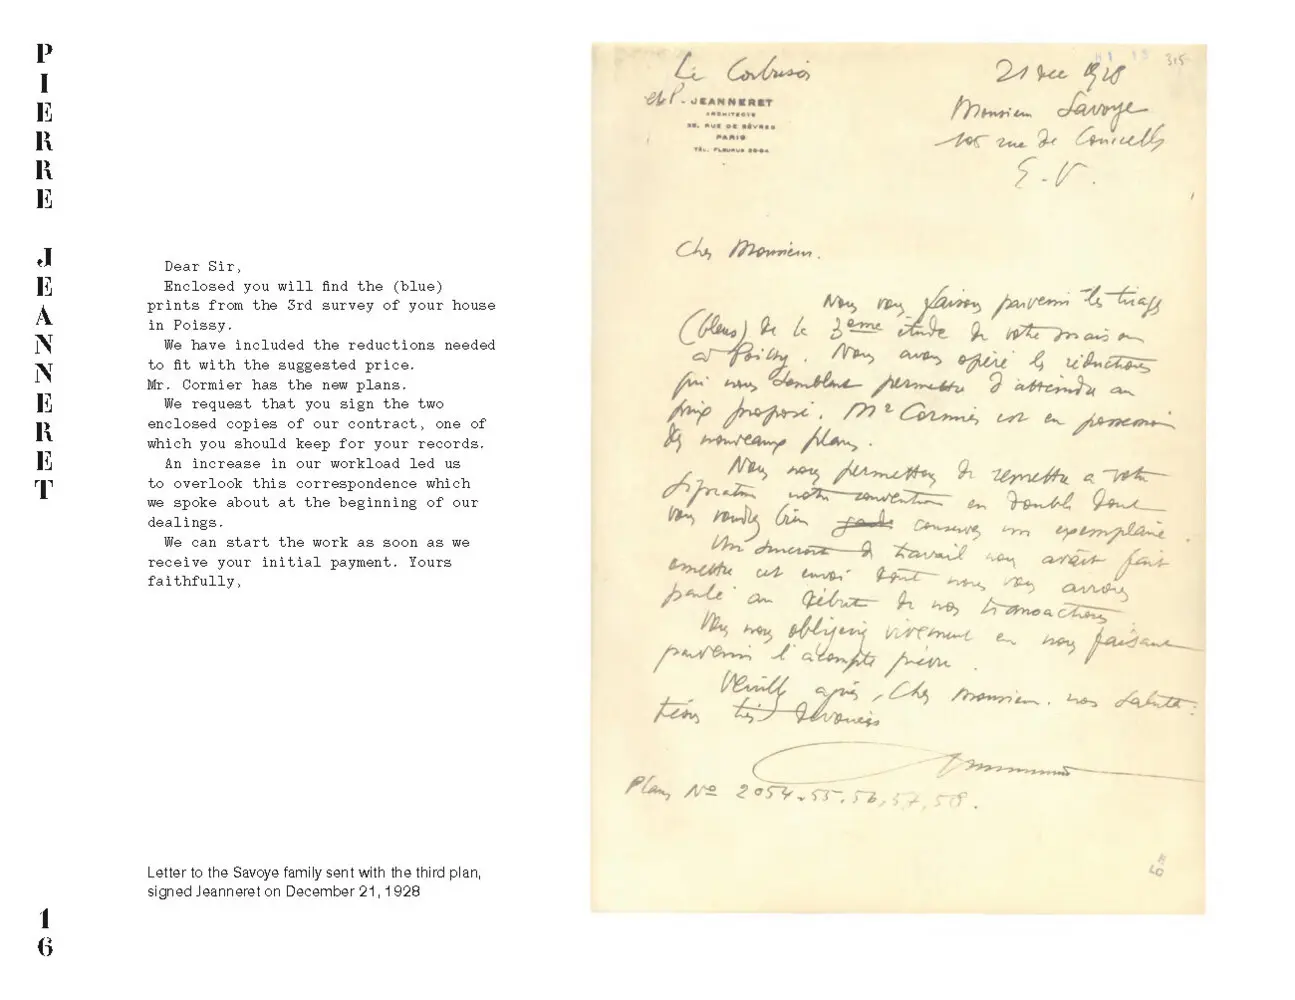 PIERRE JEANNERET
Dear Sir,
Enclosed you will find the (blue)
prints from the 3rd survey of your house
in Poissy.
We have included the reductions needed
to fit with the suggested price.
Mr. Cormier has the new plans.
We request that you sign the two
enclosed copies of our contract, one of
which you should keep for your records.
An increase in our workload led us
to overlook this correspondence which
we spoke about at the beginning of our
dealings.
We can start the work as soon as we
receive your initial payment. Yours
faithfully,
Letter to the Savoye family sent with the third plan,
signed Jeanneret on December 21, 1928
16
Le Corbusier
et P. JEANNERET
ARCHITECTE
35, RUE DE SÈVRES
PARIS
TÉL. FLEURUS
21 dec 1928
315
Monsieur Savoye
105 rue de Courcelles
E.V.
Cher Monsieur.
Nous vous faisons parvenir les tirages
(bleus) de la 3eme étude de votre maison
à Poissy. Nous avons opéré les réductions
qui nous semblent permettre d'atteindre au
prix proposé. Mr Cormier est en possession
des nouveaux plans.
Nous nous permettons de remettre à votre
signature notre convention en double dont
vous voudrez bien conserver un exemplaire.
Un surcroît de travail nous avait fait
omettre cet envoi dont nous vous avions
parlé au début de nos transactions.
Vous nous obligeriez vivement en nous faisant
parvenir l'acompte prévu.
Veuillez agréer, Cher Monsieur. nos saluta-
tions très dévouées
Plans No 2054.55.56,57,58.